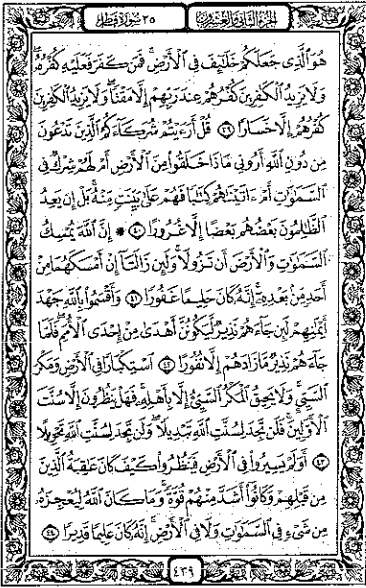 الجزء الثاني والعشرون
٣٥ سورة فاطر
هُوَ ٱلَّذِى جَعَلَكُمْ خَلَـٰٓئِفَ فِى ٱلْأَرْضِ ۚ فَمَن كَفَرَ فَعَلَيْهِ كُفْرُهُۥ ۖ
وَلَا يَزِيدُ ٱلْكَـٰفِرِينَ كُفْرُهُمْ عِندَ رَبِّهِمْ إِلَّا مَقْتًا ۖ وَلَا يَزِيدُ ٱلْكَـٰفِرِينَ
كُفْرُهُمْ إِلَّا خَسَارًا ٣٩ قُلْ أَرَءَيْتُمْ شُرَكَآءَكُمُ ٱلَّذِينَ تَدْعُونَ
مِن دُونِ ٱللَّهِ أَرُونِى مَاذَا خَلَقُوا۟ مِنَ ٱلْأَرْضِ أَمْ لَهُمْ شِرْكٌ فِى
ٱلسَّمَـٰوَٰتِ أَمْ ءَاتَيْنَـٰهُمْ كِتَـٰبًا فَهُمْ عَلَىٰ بَيِّنَتٍ مِّنْهُ ۚ بَلْ إِن يَعِدُ
ٱلظَّـٰلِمُونَ بَعْضُهُم بَعْضًا إِلَّا غُرُورًا ٤٠ ۞ إِنَّ ٱللَّهَ يُمْسِكُ
ٱلسَّمَـٰوَٰتِ وَٱلْأَرْضَ أَن تَزُولَا ۚ وَلَئِن زَالَتَآ إِنْ أَمْسَكَهُمَا مِنْ
أَحَدٍ مِّنۢ بَعْدِهِۦٓ ۚ إِنَّهُۥ كَانَ حَلِيمًا غَفُورًا ٤١ وَأَقْسَمُوا۟ بِٱللَّهِ جَهْدَ
أَيْمَـٰنِهِمْ لَئِن جَآءَهُمْ نَذِيرٌ لَّيَكُونُنَّ أَهْدَىٰ مِنْ إِحْدَى ٱلْأُمَمِ ۖ فَلَمَّا
جَآءَهُمْ نَذِيرٌ مَّا زَادَهُمْ إِلَّا نُفُورًا ٤٢ ٱسْتِكْبَارًا فِى ٱلْأَرْضِ وَمَكْرَ
ٱلسَّيِّئِ ۚ وَلَا يَحِيقُ ٱلْمَكْرُ ٱلسَّيِّئُ إِلَّا بِأَهْلِهِۦ ۚ فَهَلْ يَنظُرُونَ إِلَّا سُنَّتَ
ٱلْأَوَّلِينَ ۚ فَلَن تَجِدَ لِسُنَّتِ ٱللَّهِ تَبْدِيلًا ۖ وَلَن تَجِدَ لِسُنَّتِ ٱللَّهِ تَحْوِيلًا
٤٣ أَوَلَمْ يَسِيرُوا۟ فِى ٱلْأَرْضِ فَيَنظُرُوا۟ كَيْفَ كَانَ عَـٰقِبَةُ ٱلَّذِينَ
مِن قَبْلِهِمْ وَكَانُوٓا۟ أَشَدَّ مِنْهُمْ قُوَّةً ۚ وَمَا كَانَ ٱللَّهُ لِيُعْجِزَهُۥ
مِن شَىْءٍ فِى ٱلسَّمَـٰوَٰتِ وَلَا فِى ٱلْأَرْضِ ۚ إِنَّهُۥ كَانَ عَلِيمًا قَدِيرًا ٤٤
٤٣٩